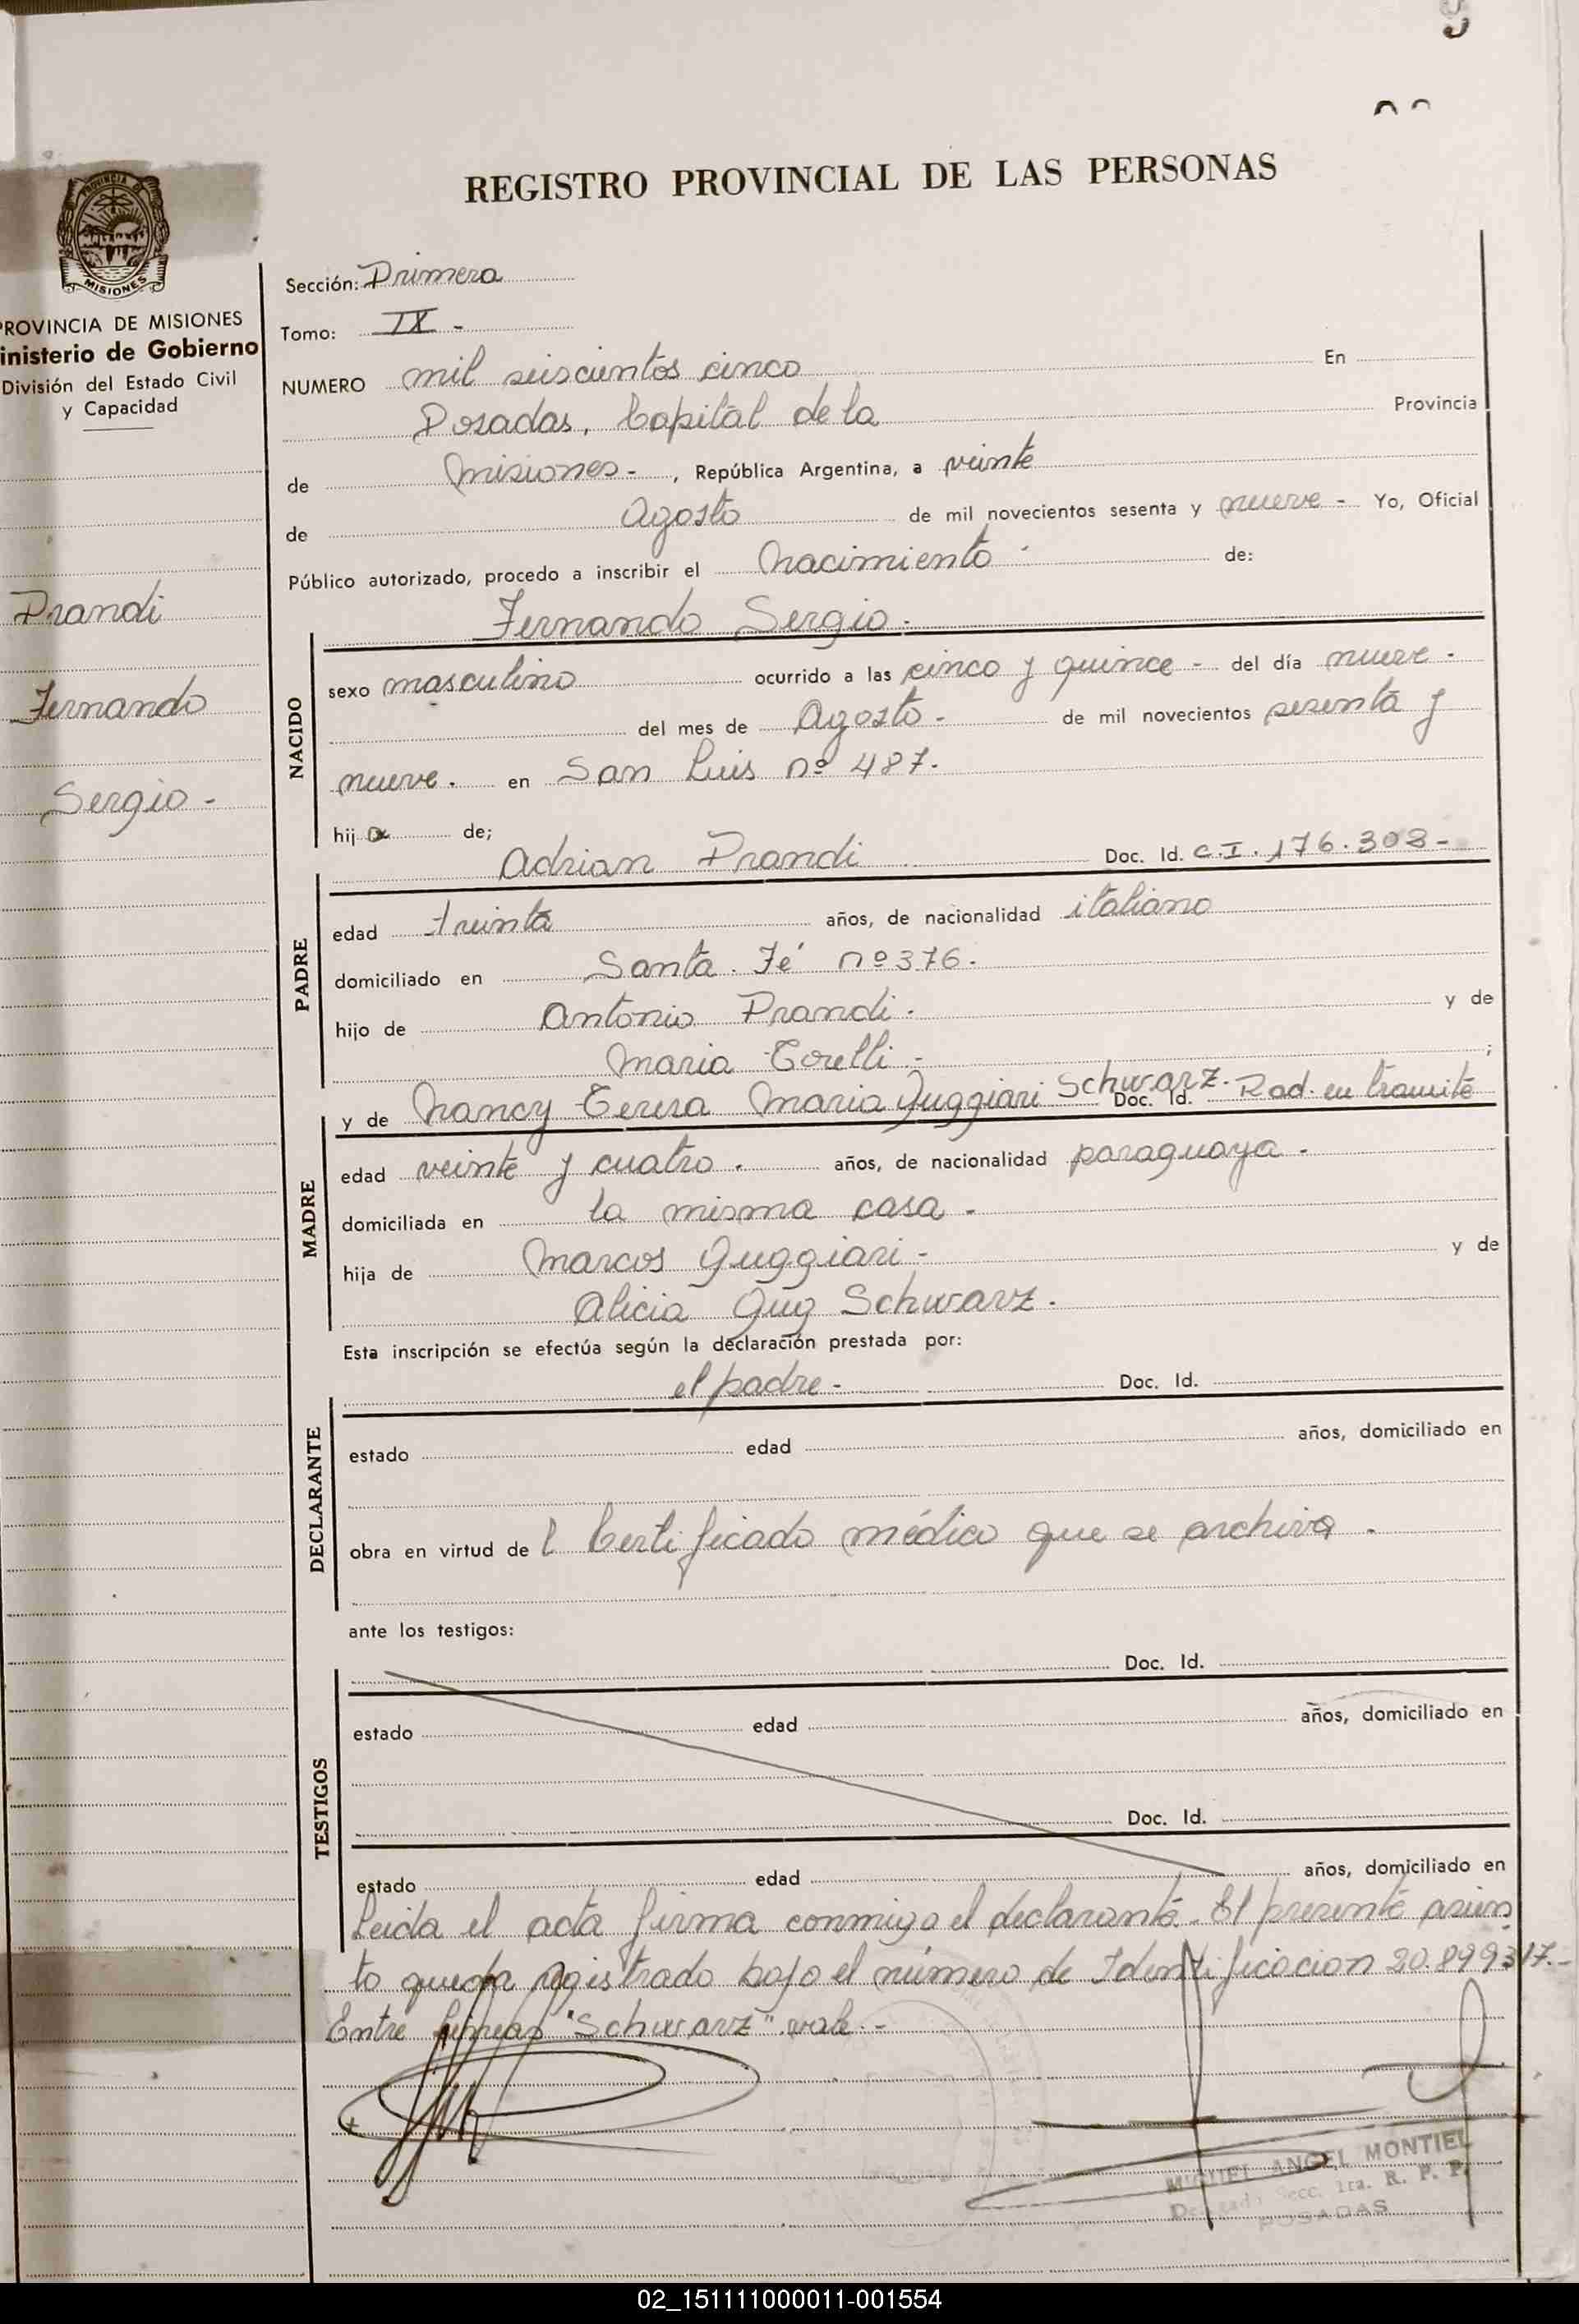 REGISTRO PROVINCIAL DE LAS PERSONAS
PROVINCIA DE
MISIONES
PROVINCIA DE MISIONES
inisterio de Gobierno
División del Estado Civil
y Capacidad
Prandi
Fernando
Sergio -
Sección: Primera
Tomo: IX -
NUMERO mil seiscientos cinco En
Posadas, Capital de la Provincia
de Misiones -, República Argentina, a veinte
de Agosto de mil novecientos sesenta y nueve - Yo, Oficial
Público autorizado, procedo a inscribir el Nacimiento - de:
Fernando Sergio -
NACIDO
sexo masculino ocurrido a las cinco y quince - del día nueve -
del mes de Agosto - de mil novecientos sesenta y
nueve. en San Luis nº 487.
hijo de;
Adrian Prandi Doc. Id. C.I. 176.308 -
PADRE
edad treinta años, de nacionalidad italiano
domiciliado en Santa Fé nº 376.
hijo de Antonio Prandi. y de
Maria Torelli - ;
y de Nancy Teresa Maria Guggiari Schwarz. Doc. Id. Rad. en tramite
MADRE
edad veinte y cuatro. años, de nacionalidad paraguaya.
domiciliada en la misma casa -
hija de Marcos Guggiari - y de
Alicia Gug Schwarz.
Esta inscripción se efectúa según la declaración prestada por:
el padre - Doc. Id.
DECLARANTE
estado edad años, domiciliado en
obra en virtud del Certificado médico que se archiva.
ante los testigos:
Doc. Id.
TESTIGOS
estado edad años, domiciliado en
Doc. Id.
estado edad años, domiciliado en
Leida el acta firma conmigo el declarante. El presente asien
to queda registrado bajo el número de Identificacion 20.899317.-
Entre lineas "Schwarz" vale.-
MIGUEL ANGEL MONTIEL
Delegado Secc. 1ra. R. P. P.
POSADAS
02_151111000011-001554